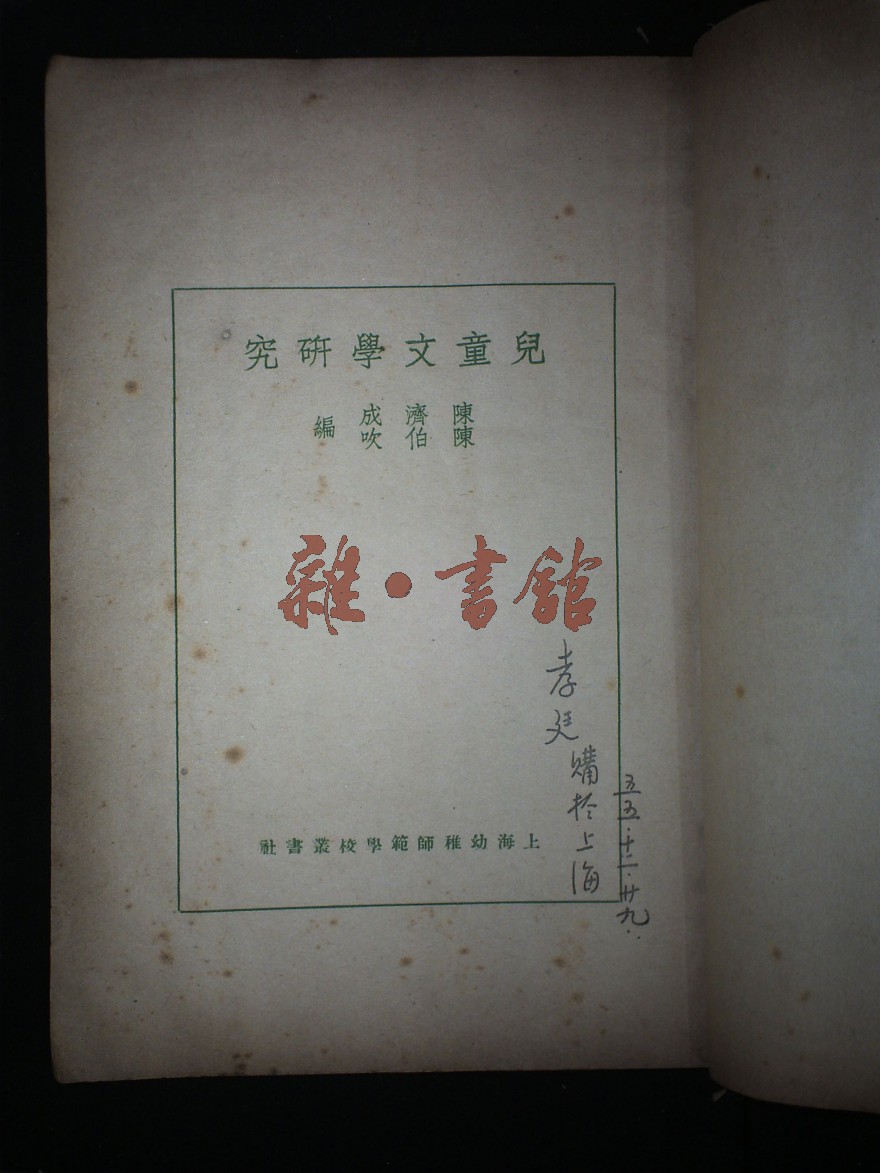 兒童文學研究
陳濟成
陳伯吹
編
雜·書館
孝廷
購於上海
五五·十二·廿九·
上海幼稚師範學校叢書社